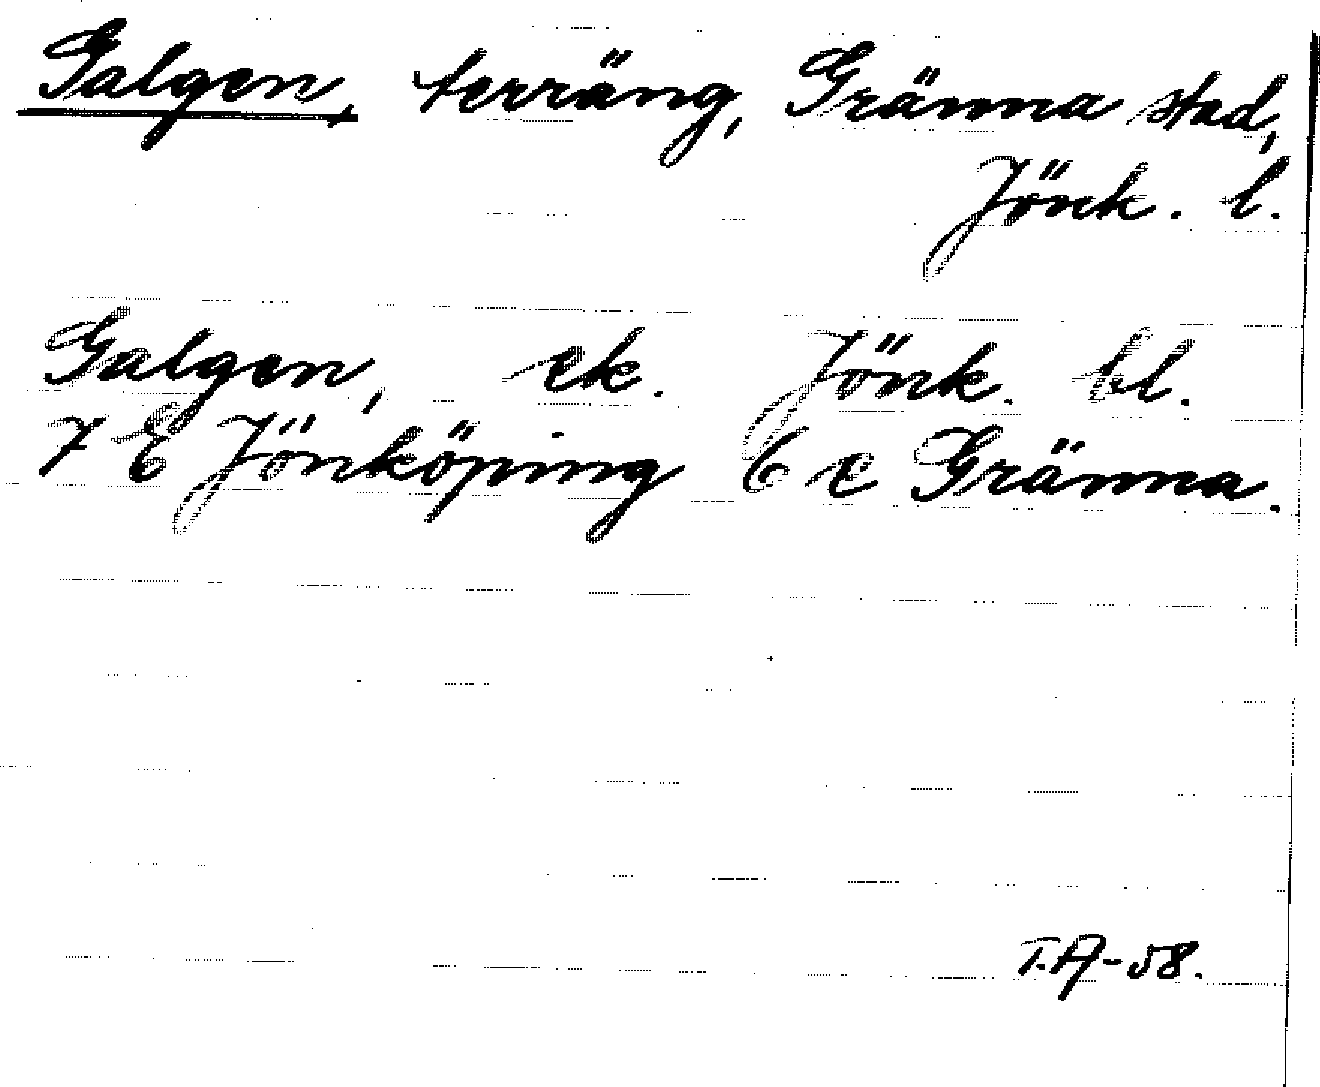 Galgen, terräng, Gränna stad,
Jönk. l.
Galgen, ek. Jönk. bl.
7 E Jönköping 6 c Gränna.
T.A-58.